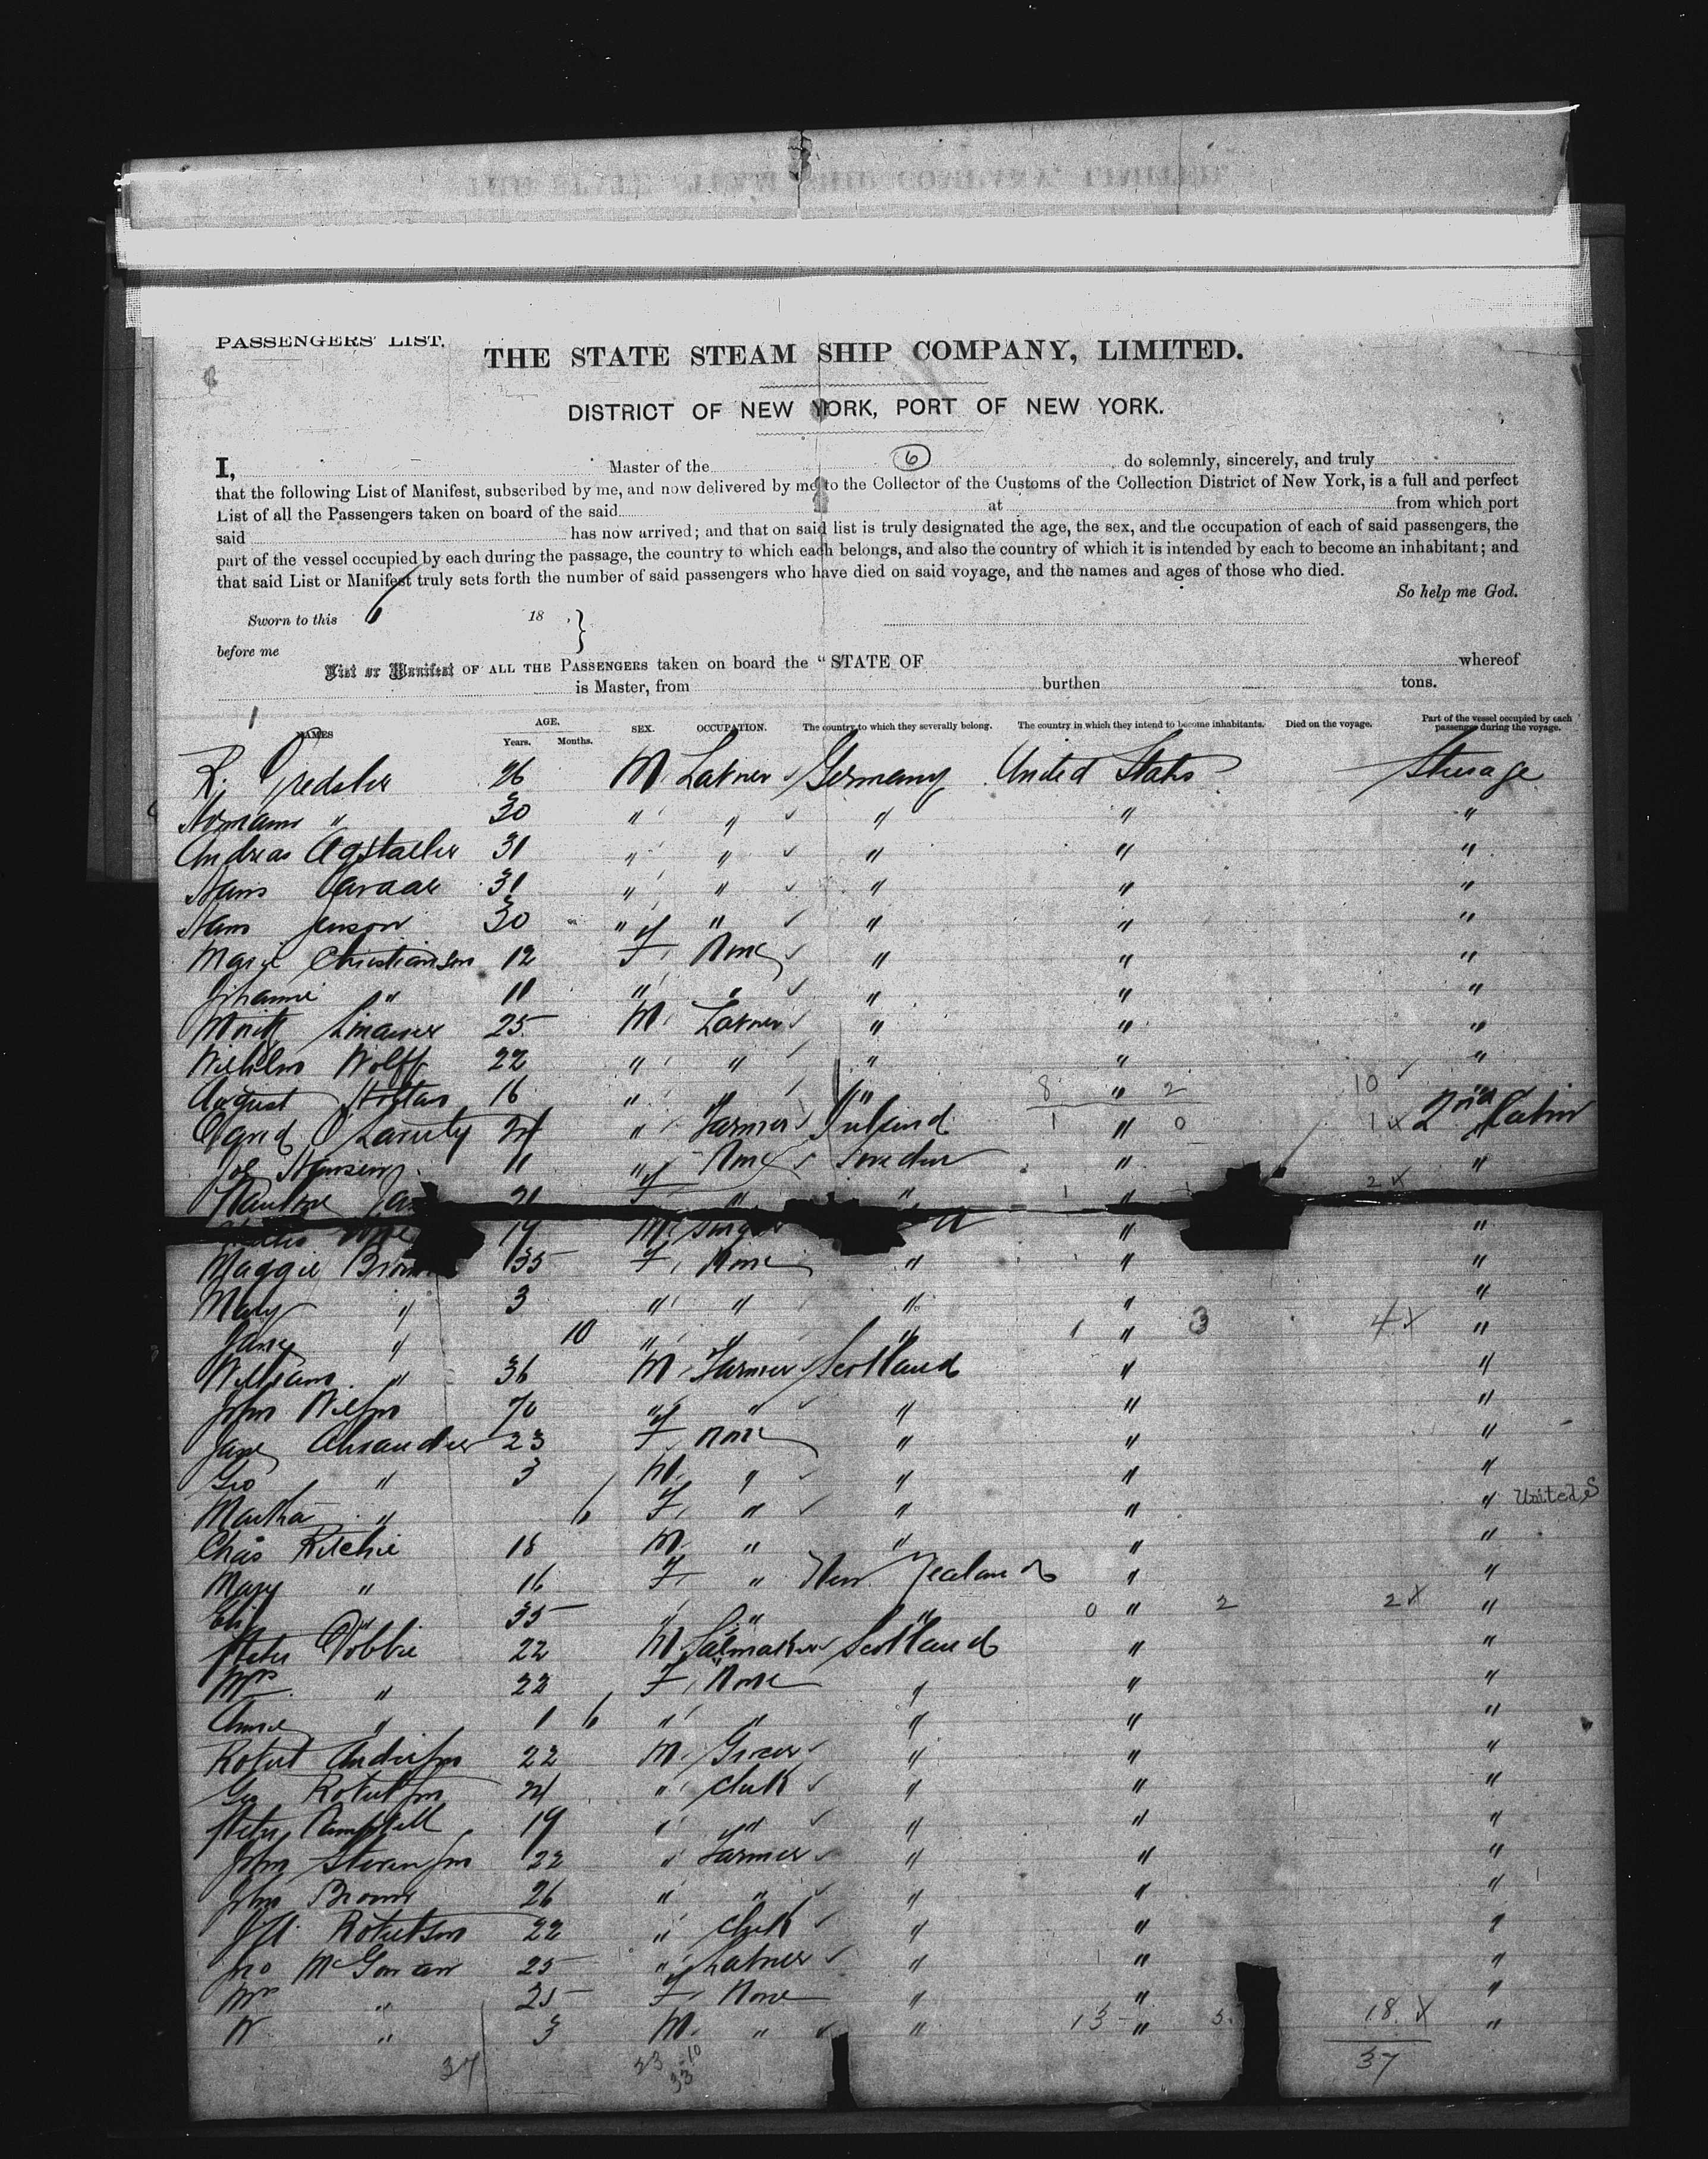 PASSENGERS' LIST.
THE STATE STEAM SHIP COMPANY, LIMITED.
DISTRICT OF NEW YORK, PORT OF NEW YORK.
I, Master of the 6 do solemnly, sincerely, and truly
that the following List of Manifest, subscribed by me, and now delivered by me to the Collector of the Customs of the Collection District of New York, is a full and perfect
List of all the Passengers taken on board of the said at from which port
said has now arrived; and that on said list is truly designated the age, the sex, and the occupation of each of said passengers, the
part of the vessel occupied by each during the passage, the country to which each belongs, and also the country of which it is intended by each to become an inhabitant; and
that said List or Manifest truly sets forth the number of said passengers who have died on said voyage, and the names and ages of those who died.
So help me God.
Sworn to this 18 . }
before me
List or Manifest OF ALL THE PASSENGERS taken on board the "STATE OF whereof
is Master, from burthen tons.
1
NAMES AGE. Years. Months. SEX. OCCUPATION. The country to which they severally belong. The country in which they intend to become inhabitants. Died on the voyage. Part of the vessel occupied by each passenger during the voyage.
R. 26 M Labner Germany United States Sterage
" 30 " " " " "
Andreas 31 " " " " "
Hans 31 " " " " "
Hans Jenson 30 " " " " "
Marie Christiansen 12 F None " " "
Johanne " 11 " " " " "
25 M Labner " " "
Wilhelm Wolff 22 " " " " "
August 16 " " " 8 " 2 10 "
24 " Farmer 1 " 0 1 x 2nd Cabin
Hansen 11 " None Sweden " "
21 F " " 1 " 2 x
19 M "  "
Maggie Brown 35 F None " " "
Mary " 3 " " " " "
Jane " 10 " " " 1 " 3 4 x "
William " 36 M Farmer Scotland " "
John Wilson 70 " " " " "
Jane Alexander 23 F None " " "
Geo " 3 M " " " "
Martha " 6 F " " " " United S
Chas Ritchie 18 M " " " "
Mary " 16 F " New Zealand " "
Eliz " 35 " " " 0 " 2 2 x "
Peter Dobbie 22 M Scotland " "
Mrs " 22 F None " " "
" 1 6 " " " " "
Robert Anderson 22 M Grocer " " "
Geo Robertson 24 " Clerk " " "
Peter Campbell 19 " " " " "
John Stevenson 22 " Farmer " " "
John Brown 26 " " " " "
Robertson 22 " Clerk " " "
Jno McGowan 25 " Labner " " "
Mrs " 25 F None " " "
W " 3 M " " 13 " 5 18 x "
37 23 10 33 37